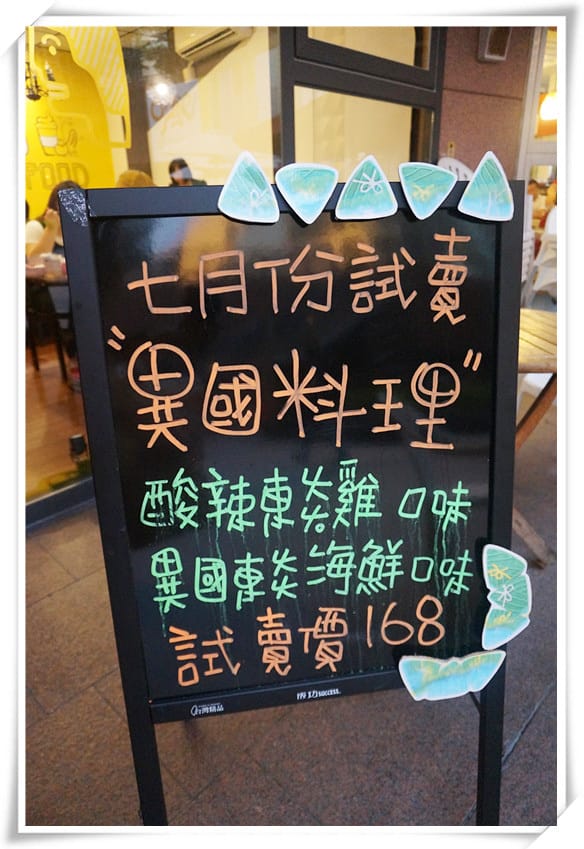 FOOD
七月份試賣
"異國料理"
酸辣東炎雞口味
異國東炎海鮮口味
試賣價168
台灣精品
成功 success.